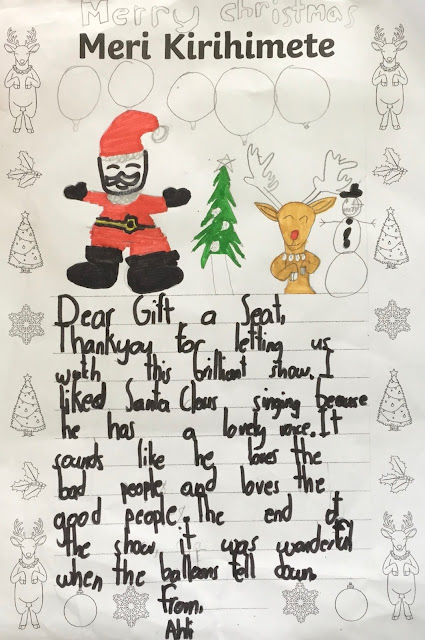 Merry christmas
Meri Kirihimete
Dear Gift a Seat,
Thankyou for letting us
watch this brilliant show. I
liked Santa Claus singing because
he has a lovely voice. It
sounds like he loves the
bad people and loves the
good people. The end of
the show it was wonderful
when the balloons fell down.
From,